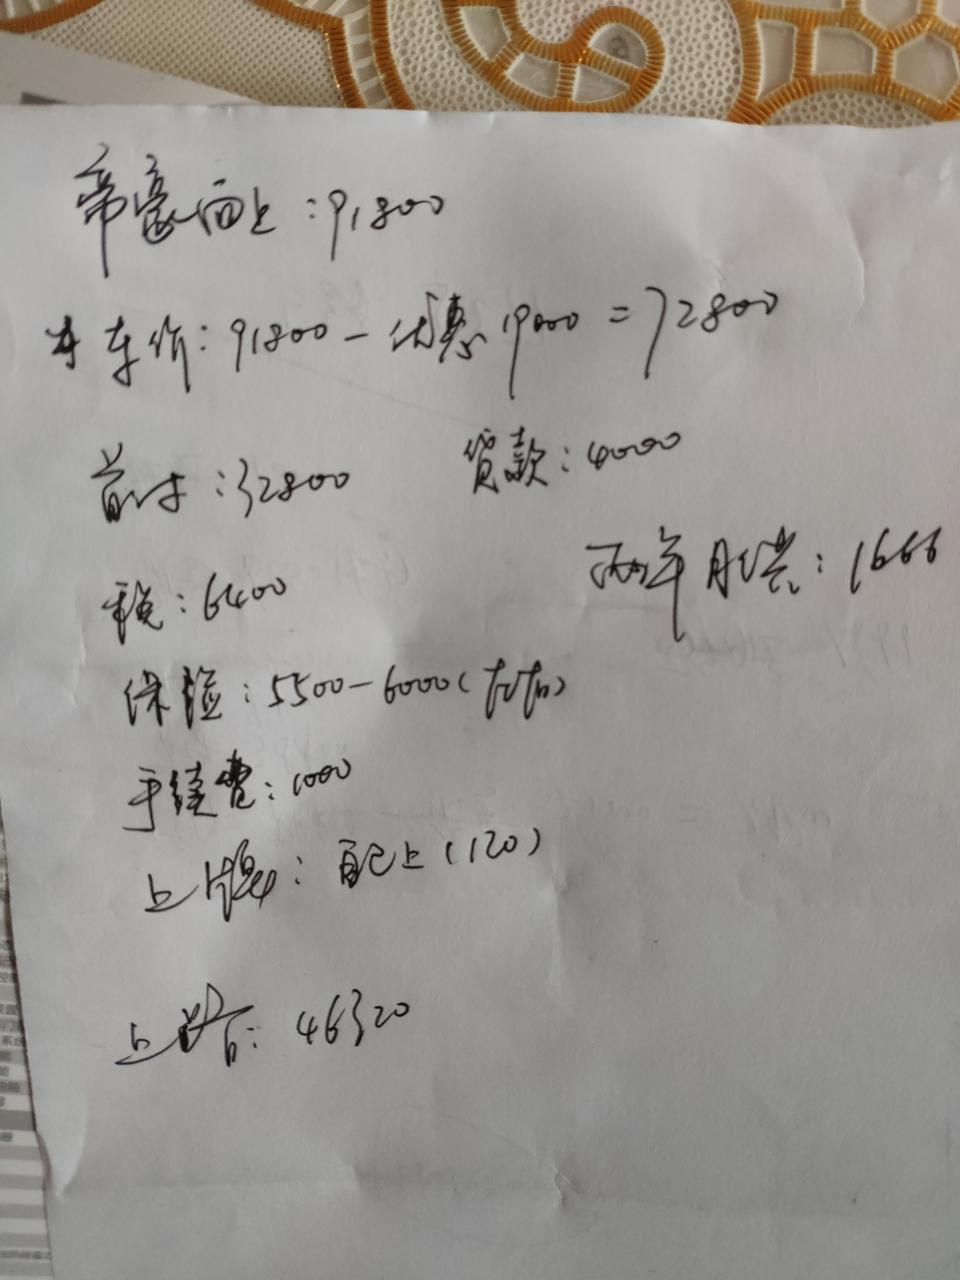 帝豪向上：91800
车价：91800－优惠19000＝72800
首付：32800 贷款：40000
两年月供：1666
税：6400
保险：5500－6000（左右）
手续费：1000
上牌：自己上（120）
上路：46320